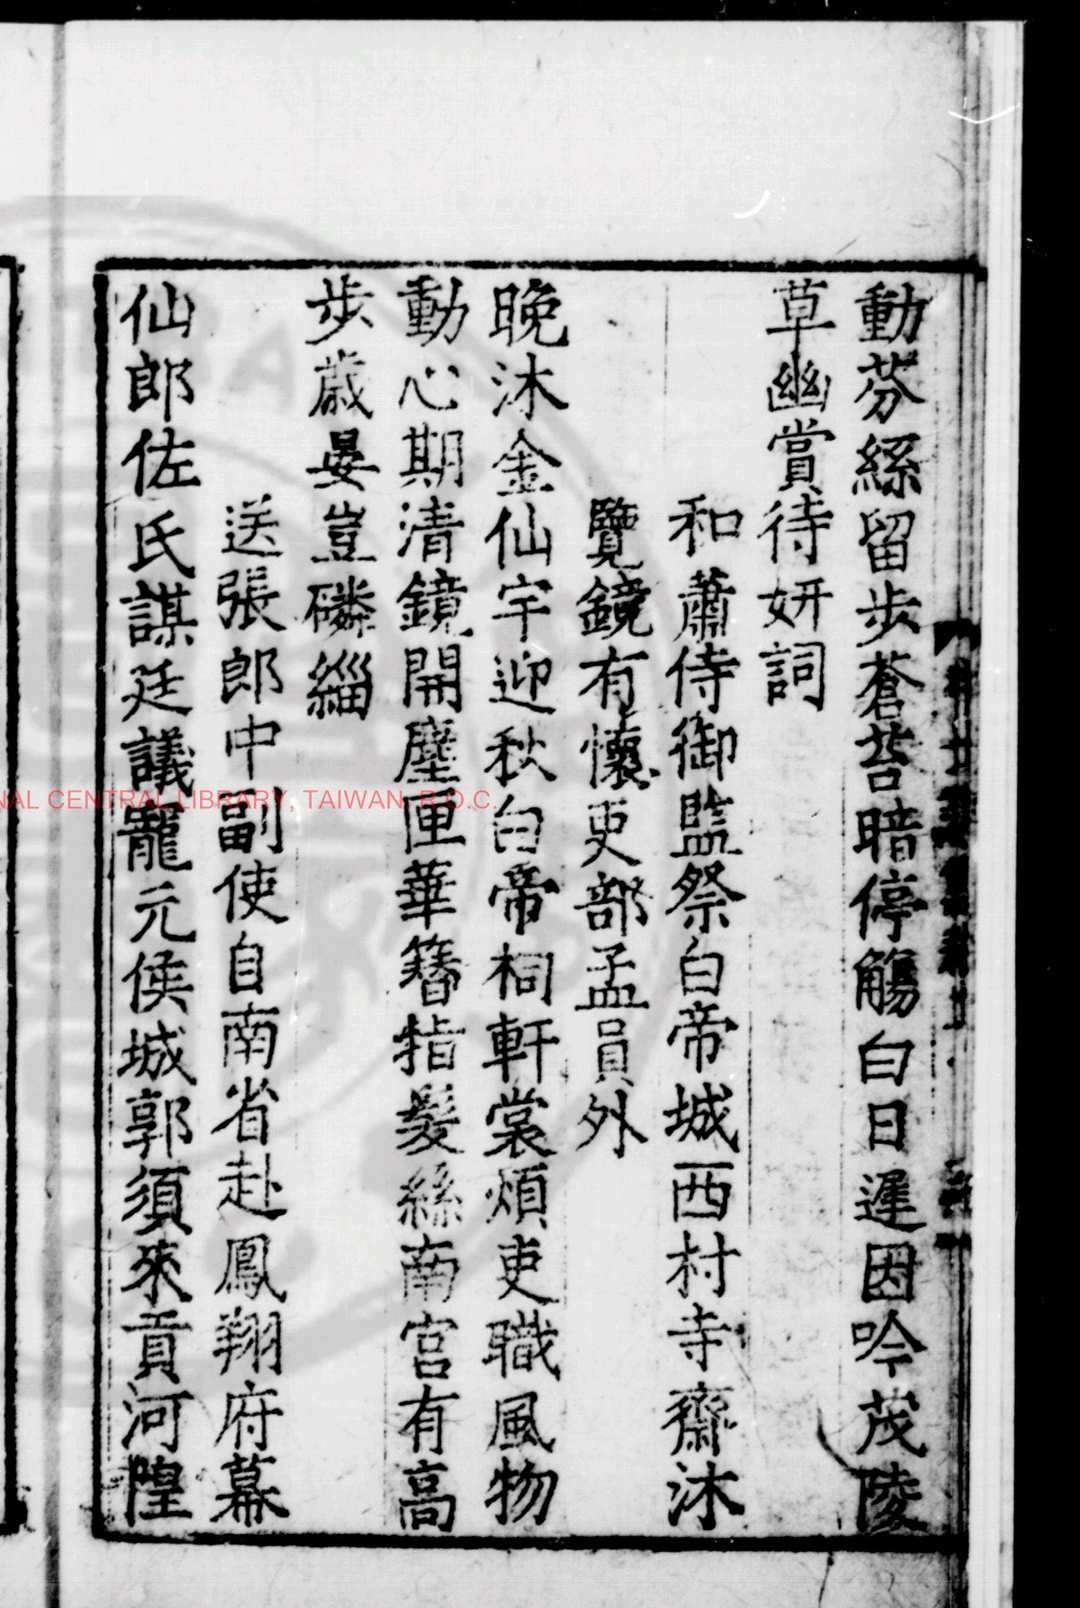 動芬絲留步蒼苔暗停觴白日遲因吟茂陵
草幽賞待妍詞
和蕭侍御監祭白帝城西村寺齋沐
覽鏡有懷吏部孟員外
晚沐金仙宇迎秋白帝祠軒裳煩吏職風物
動心期清鏡開塵匣華簪指髮絲南宮有高
步歲晏豈磷緇
送張郎中副使自南省赴鳳翔府幕
仙郎佐氏謀廷議寵元侯城郭須來貢河隍
NAL CENTRAL LIBRARY, TAIWAN, R.O.C.